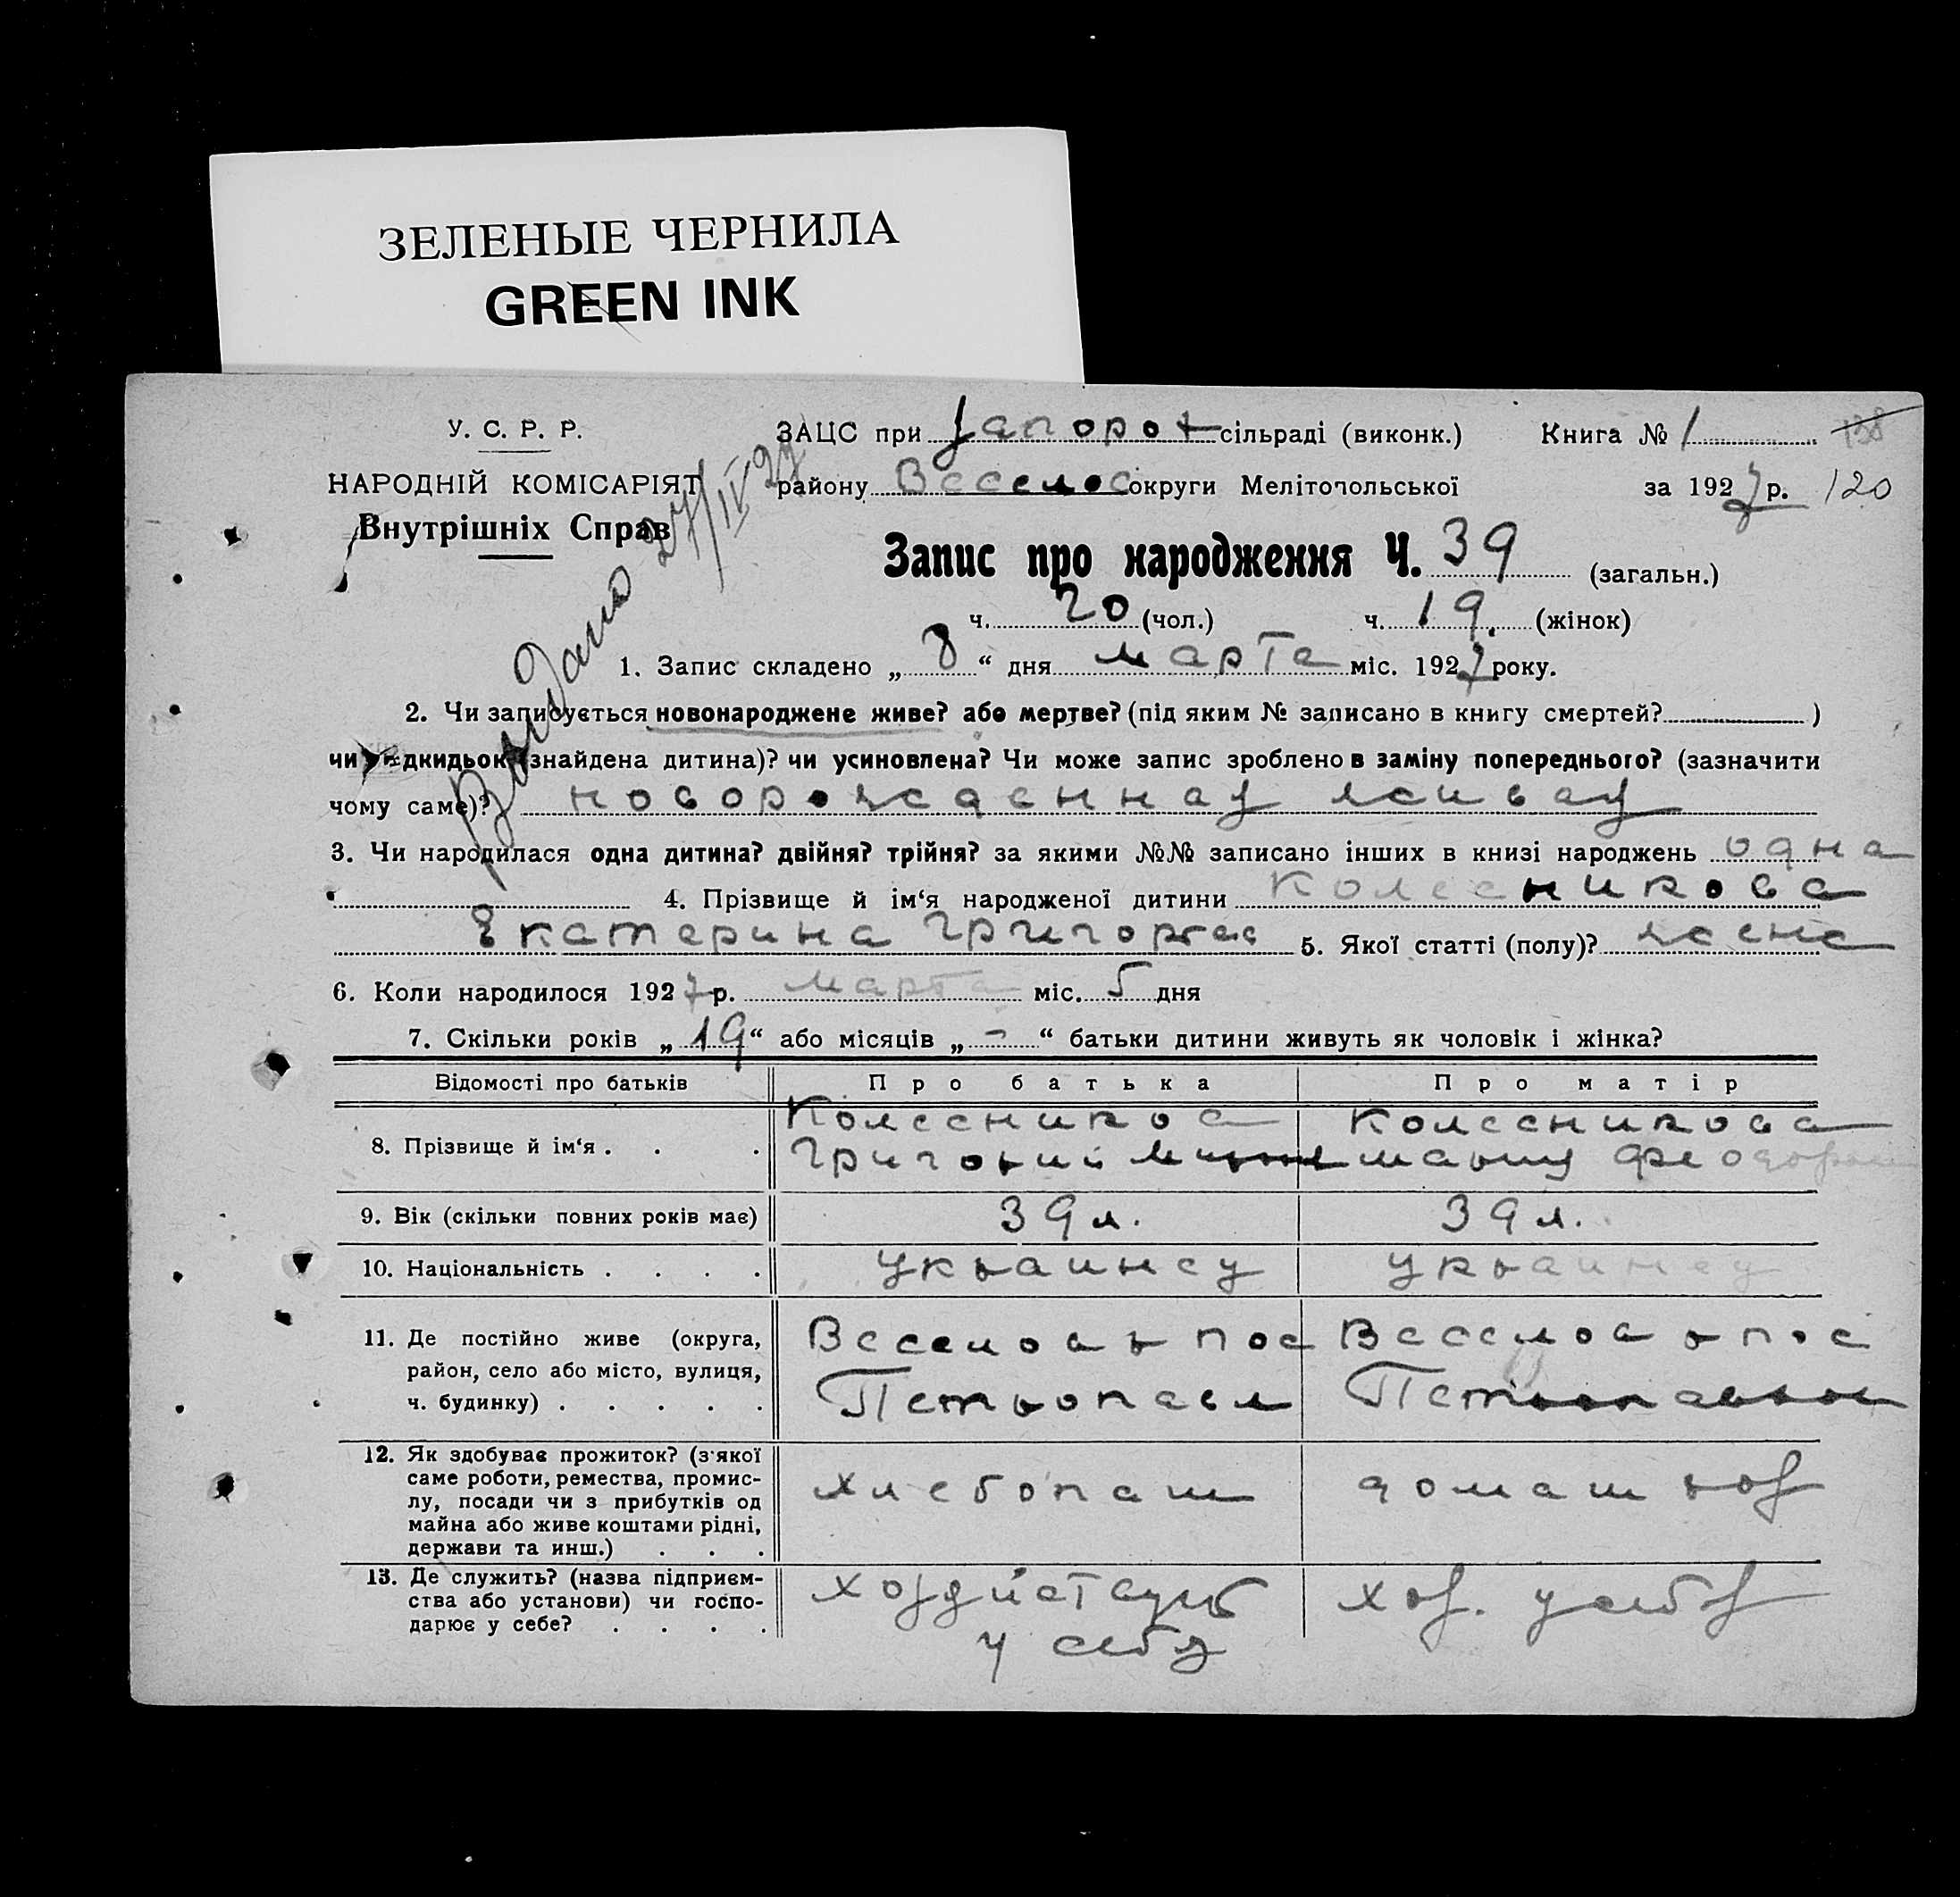 ЗЕЛЕНЫЕ ЧЕРНИЛА
GREEN INK
У. С. Р. Р.
НАРОДНІЙ КОМІСАРІЯТ
Внутрішніх Справ
Выдано 27/IV 27
ЗАЦС при Запорож сільраді (виконк.) Книга № 1 138
району Веселов округи Мелітопольської за 1927 р. 120
Запис про народження Ч. 39 (загальн.)
ч. 20 (чол.) ч. 19. (жінок)
1. Запис складено „ 8 “ дня марта міс. 1927 року.
2. Чи записується новонароджене живе? або мертве? (під яким № записано в книгу смертей? )
чи підкидьок (знайдена дитина)? чи усиновлена? Чи може запис зроблено в заміну попереднього? (зазначити
чому саме)? новорожденная живая
3. Чи народилася одна дитина? двійня? трійня? за якими №№ записано інших в книзі народжень одна
4. Прізвище й ім‘я народженої дитини Колесникова
Екатерина Григорев 5. Якої статті (полу)? жена
6. Коли народилося 1927 р. марта міс. 5 дня
7. Скільки років „ 19 “ або місяців „ - “ батьки дитини живуть як чоловік і жінка?
Відомості про батьків Про батька Про матір
8. Прізвище й ім‘я . . . Колесников Колесникова
Григорий Мария Феодоров
9. Вік (скільки повних років має) 39 л. 39 л.
10. Національність . . . . украинец украинец
11. Де постійно живе (округа, Веселов р пос Веселов р пос
район, село або місто, вулиця,
ч. будинку) . . . . . Петропавл Петропавлов
12. Як здобуває прожиток? (з‘якої
саме роботи, ремества, промис-
лу, посади чи з прибутків од хлебопаш домаш хоз
майна або живе коштами рідні,
держави та инш.) . . .
13. Де служить? (назва підприєм-
ства або установи) чи госпо- хоз. у себя
дарює у себе? . . . . у себя